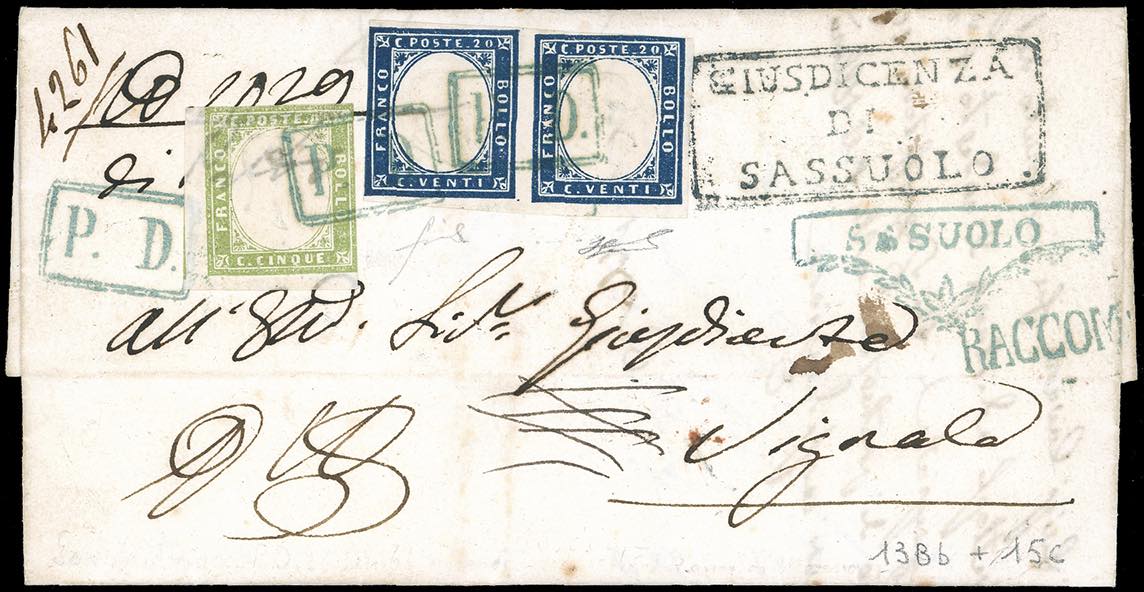 4261
C. POSTE. 20
FRANCO
BOLLO
C. VENTI
C. POSTE. 20
FRANCO
BOLLO
C. VENTI
GIUSDICENZA
DI
SASSUOLO
di
C. POSTE.
FRANCO
BOLLO
C. CINQUE
P. D.
P.
P. D.
SASSUOLO
RACCOM
all'
Giusdicente
Vignola
13Bb + 15C